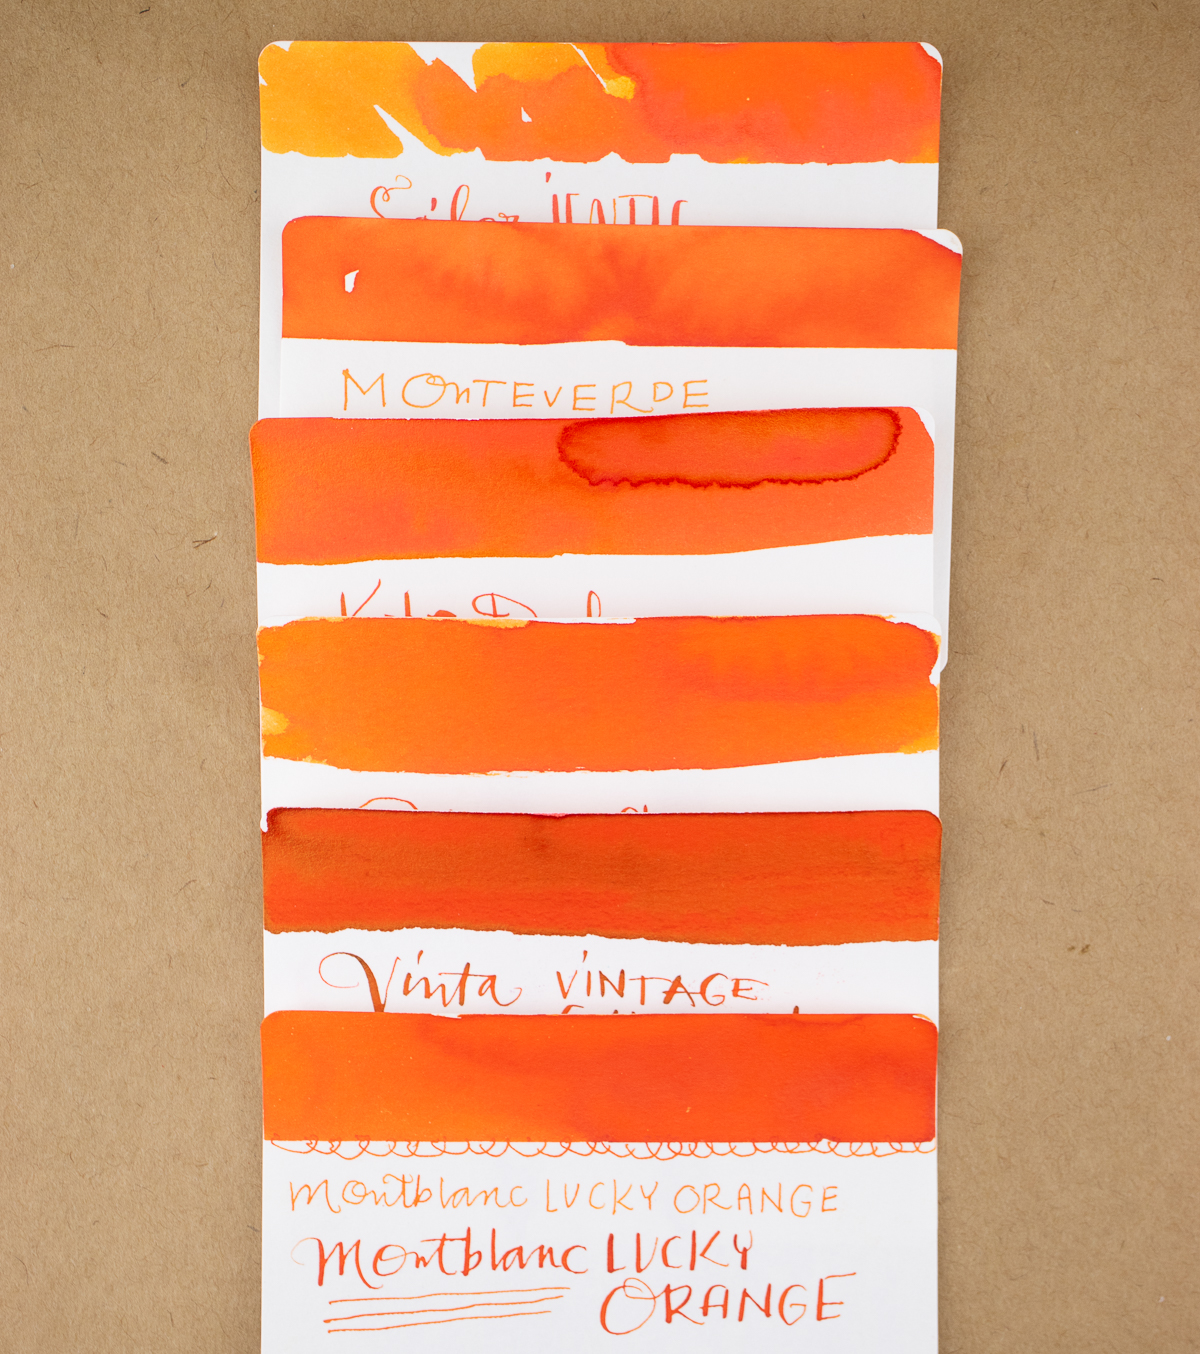 Sailor JENTLE
MONTEVERDE
Vinta VINTAGE
Montblanc LUCKY ORANGE
Montblanc LUCKY
ORANGE